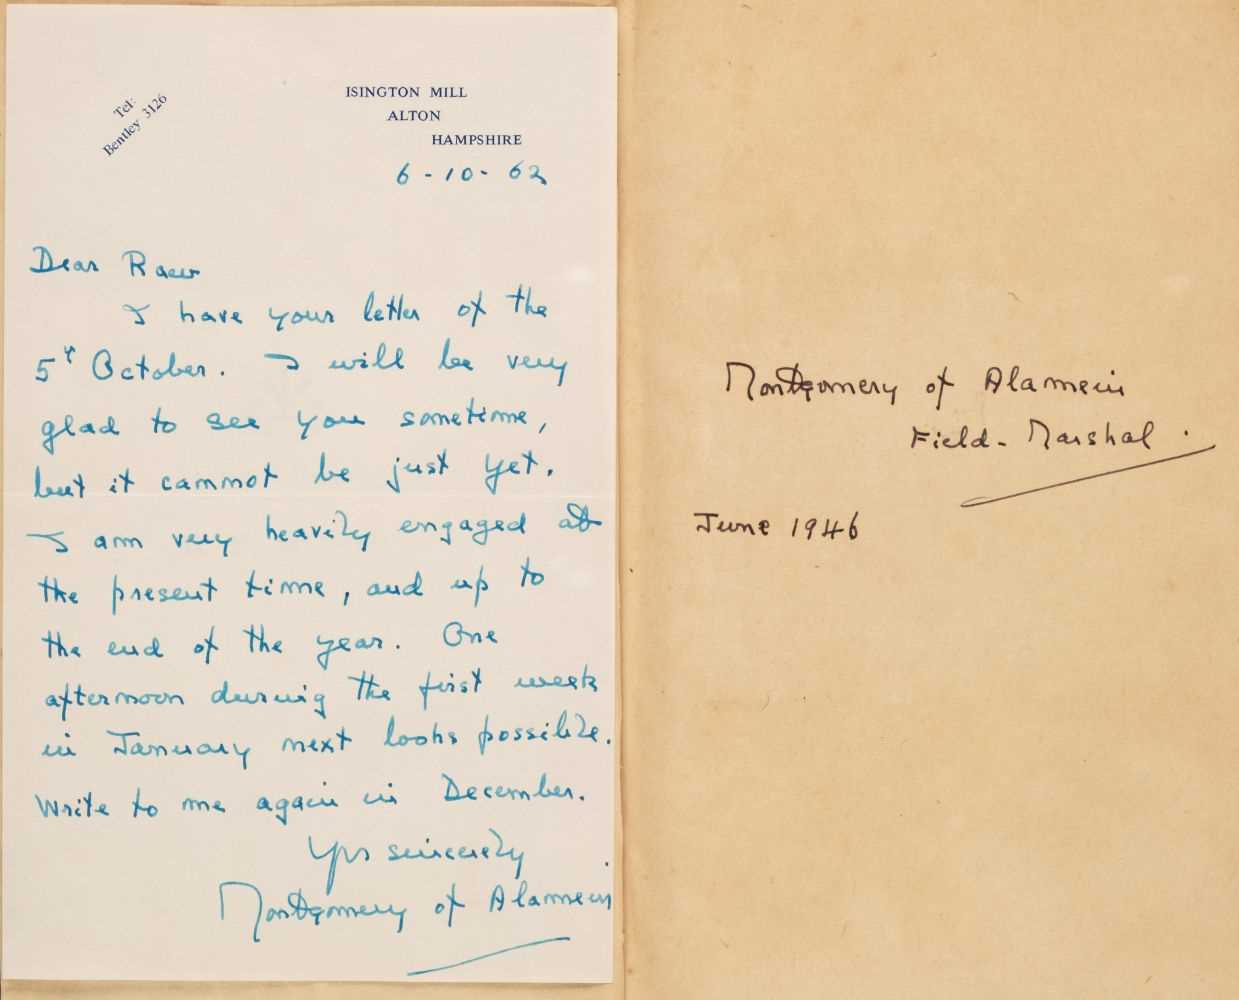 Tel:
Bentley 3126
ISINGTON MILL
ALTON
HAMPSHIRE
6-10-62
Dear Raew
I have your letter of the
5th October. I will be very
glad to see you sometime,
but it cannot be just yet.
I am very heavily engaged at
the present time, and up to
the end of the year. One
afternoon during the first week
in January next looks possible.
Write to me again in December.
Yrs sincerely
Montgomery of Alamein
Montgomery of Alamein
Field-Marshal.
June 1946